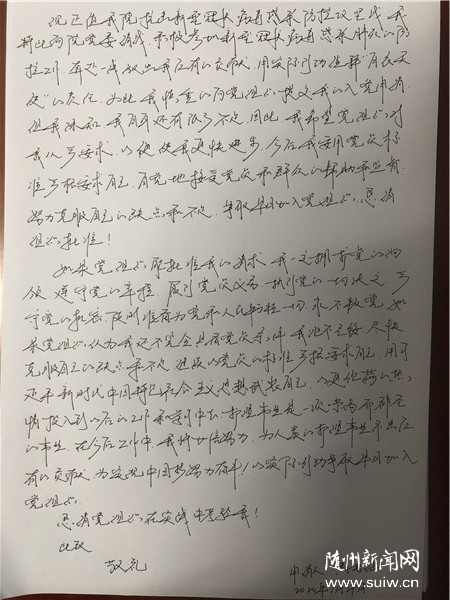 现正值我院抗击新型冠状病毒感染防控攻坚战，我
积极响应院党委号召，积极参加新型冠状病毒感染肺炎的防
控工作，在这一战役出我应有的贡献，用实际行动诠释“白衣天
使”的责任。为此我慎重的向党组织提交我的入党申请。
但我深知，我身上还有许多不足，因此，我希望党组织对
我从严要求，以便使我更快进步。今后我要用党员标
准严格要求自己，自觉地接受党员和群众的帮助和监督，
努力克服自己的缺点和不足，争取早日加入党组织，恳请
组织批准！
如果党组织能批准我的请求，我一定拥护党的纲
领，遵守党的章程，履行党员义务，执行党的一切决定，严
守党的纪律，随时准备为党和人民牺牲一切，永不叛党。如
果党组织认为我还不完全具备党员条件，我也不气馁，尽快
克服自己的缺点和不足，继续以党员的标准严格要求自己，用习
近平新时代中国特色社会主义思想武装自己，以更饱满的热
情投入到以后的工作和学习中去。护理事业是一项崇高而神圣
的事业，在今后工作中，我将加倍努力，为人类的护理事业作出应
有的贡献，为实现中国梦努力奋斗！以实际行动争取早日加入
党组织。
恳请党组织在实践中考验我！
此致
敬礼
申请人
随州新闻网
www.suiw.cn